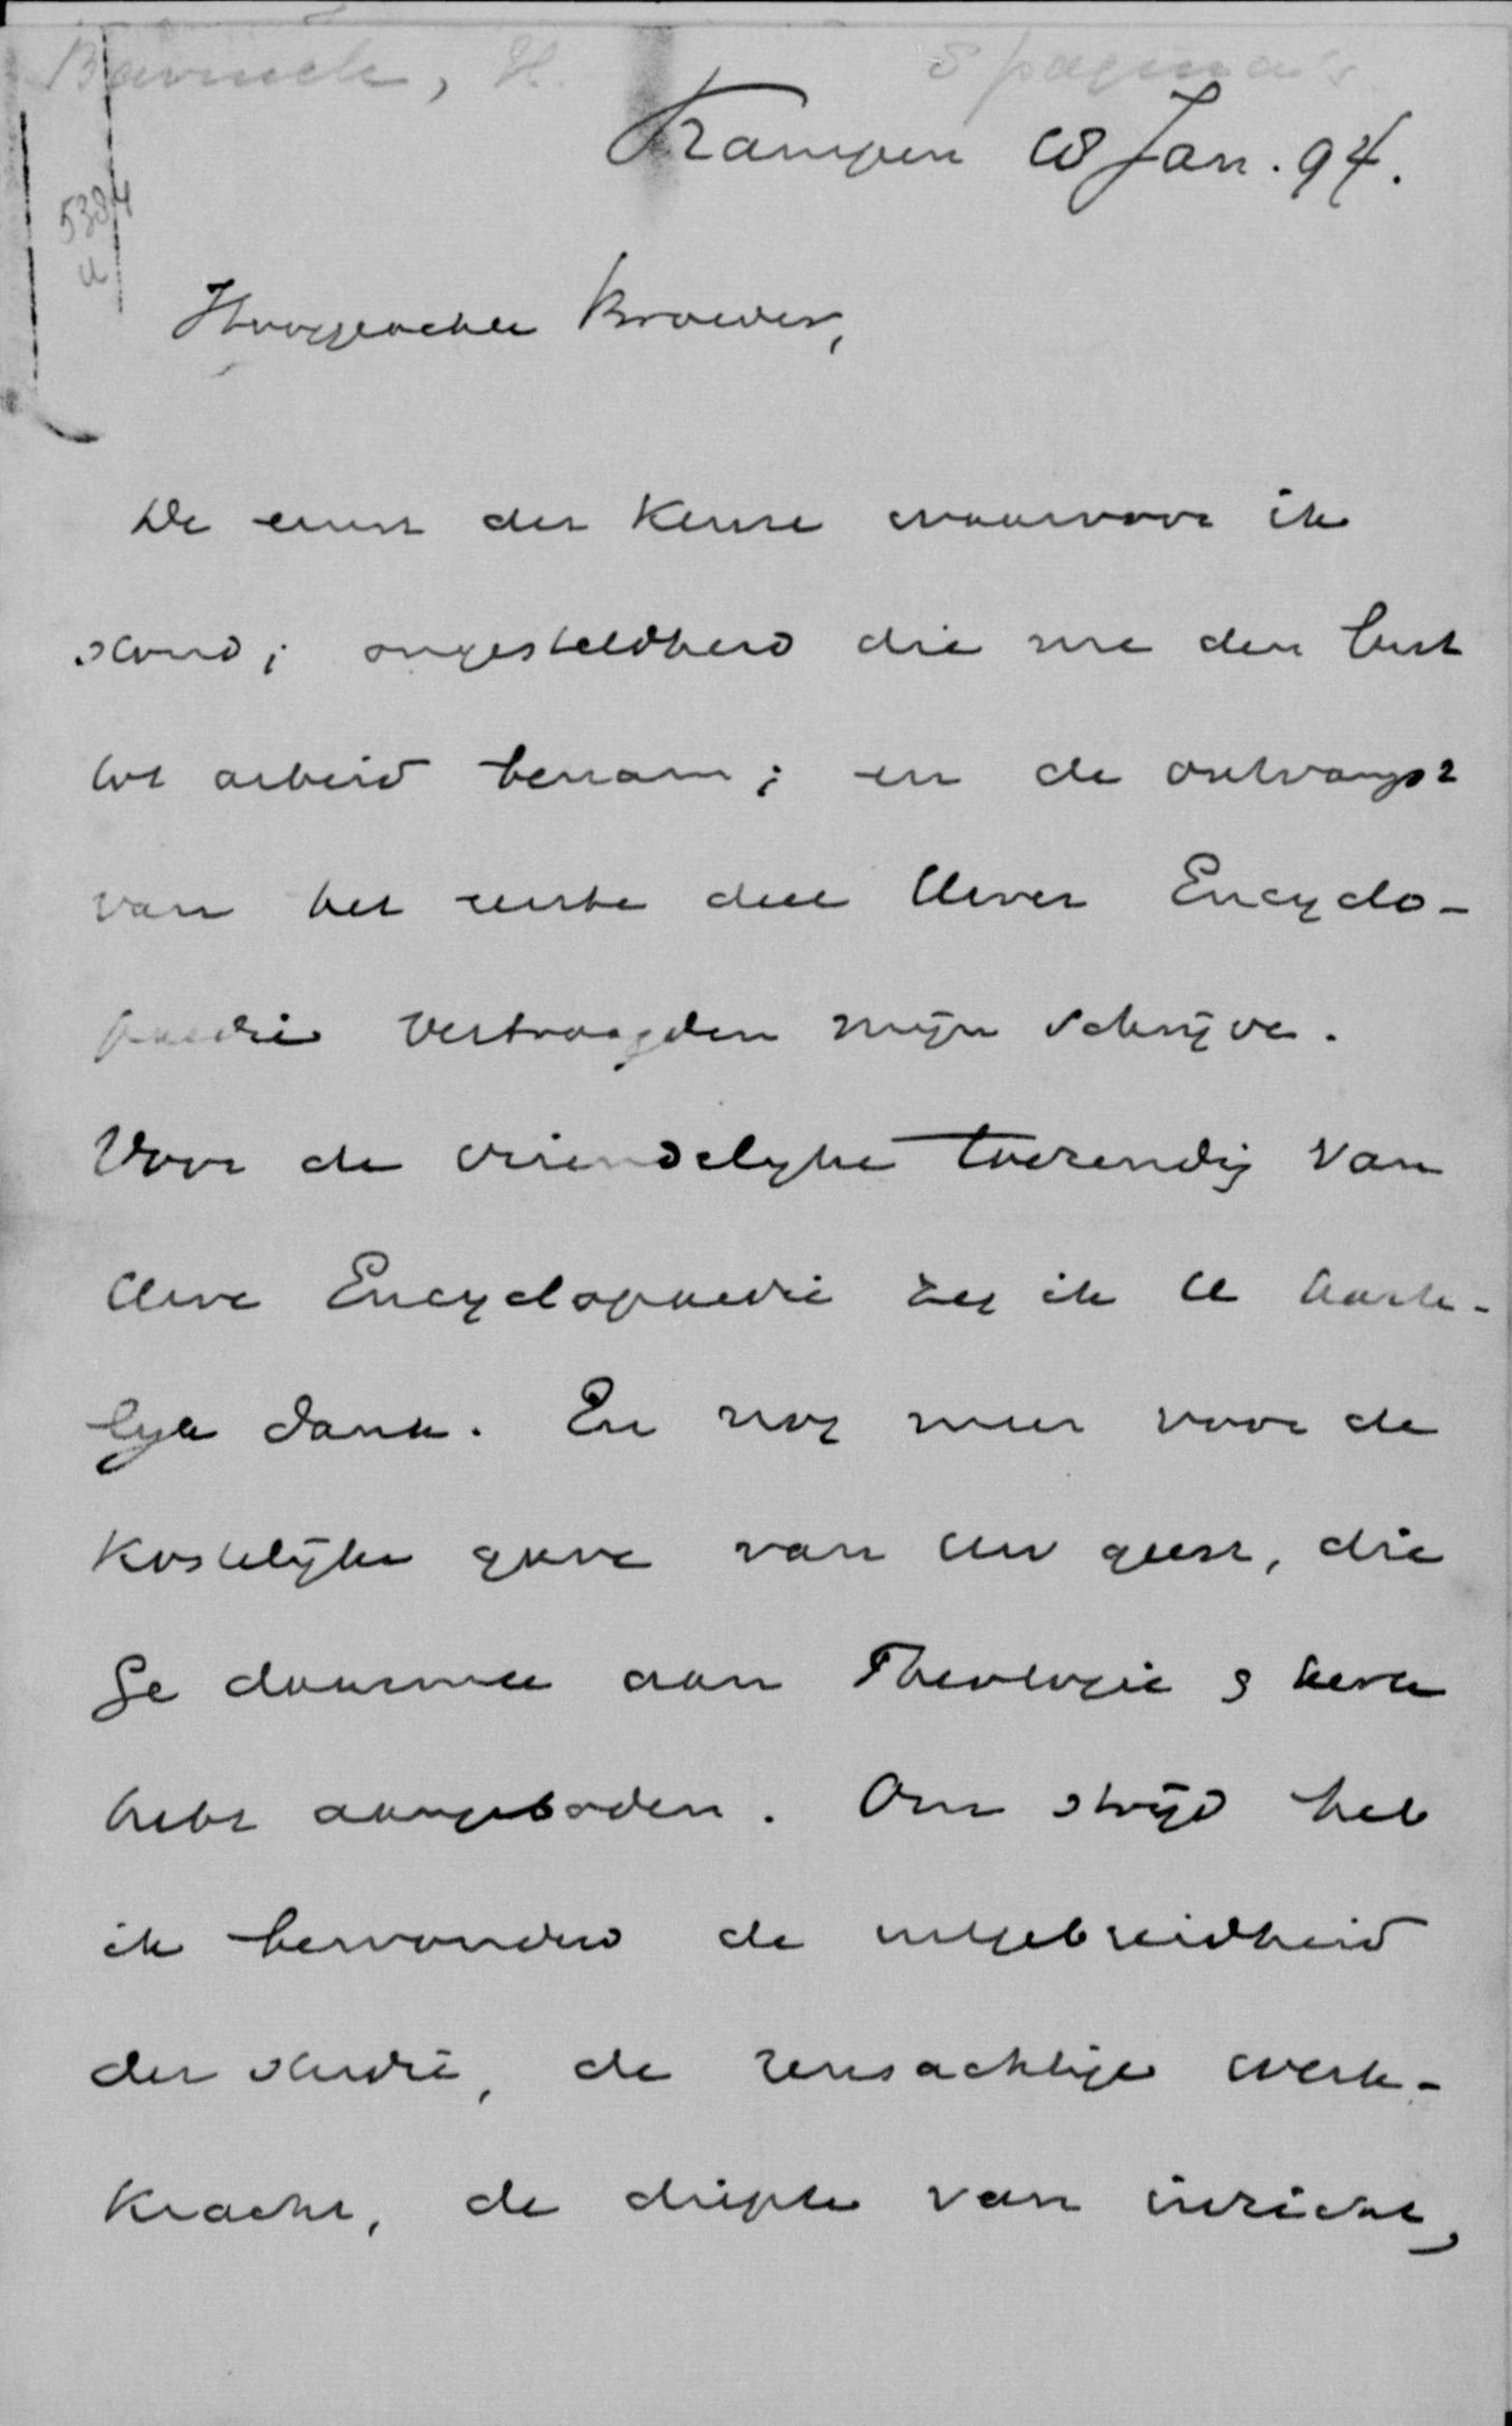 Bavinck, H. 5 pagina's
Kampen 18 Jan. 94.
5384
a
Hooggeachte Broeder,
De ernst der keuze waarvoor ik
stond; ongesteldheid die me den lust
tot arbeid benam; en de ontvangst
van het eerste deel Uwer Encyclo-
paedie vertraagden mijn schrijven.
Voor de vriendelijke toezending van
Uwe Encyclopaedie zeg ik U harte-
lijk dank. En nog meer voor de
kostelijke gave van Uw geest, die
Ge daarmee aan Theologie & kerk
hebt aangeboden. Om strijd heb
ik bewonderd de uitgebreidheid
der studie, de reusachtige werk-
kracht, de diepte van inzicht,